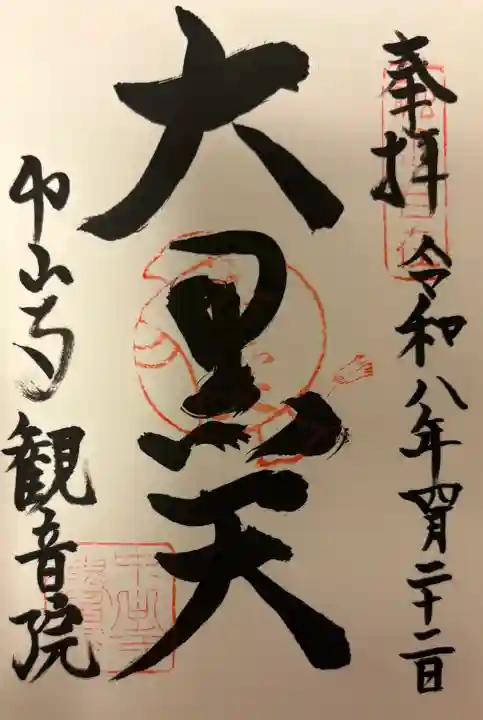 奉拝 令和八年四月二十二日
大黒天
中山寺 観音院